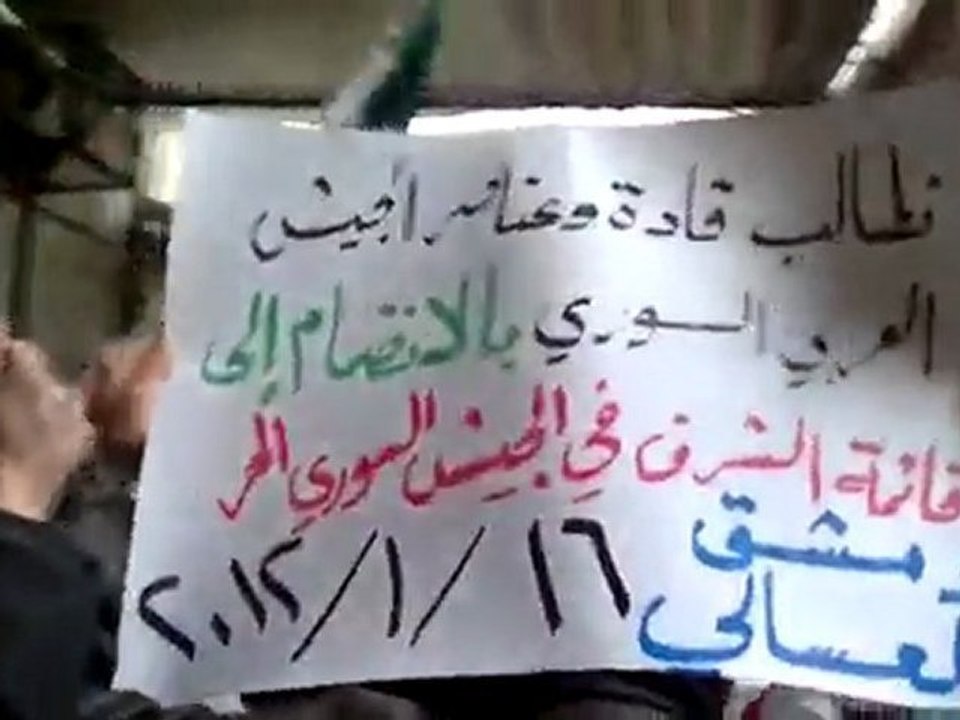 نطالب قادة وعناصر الجيش
العربي السوري بالانضمام إلى
قائمة الشرف في الجيش السوري الحر
دمشق
العسالي
٢٠١٢/١/١٦